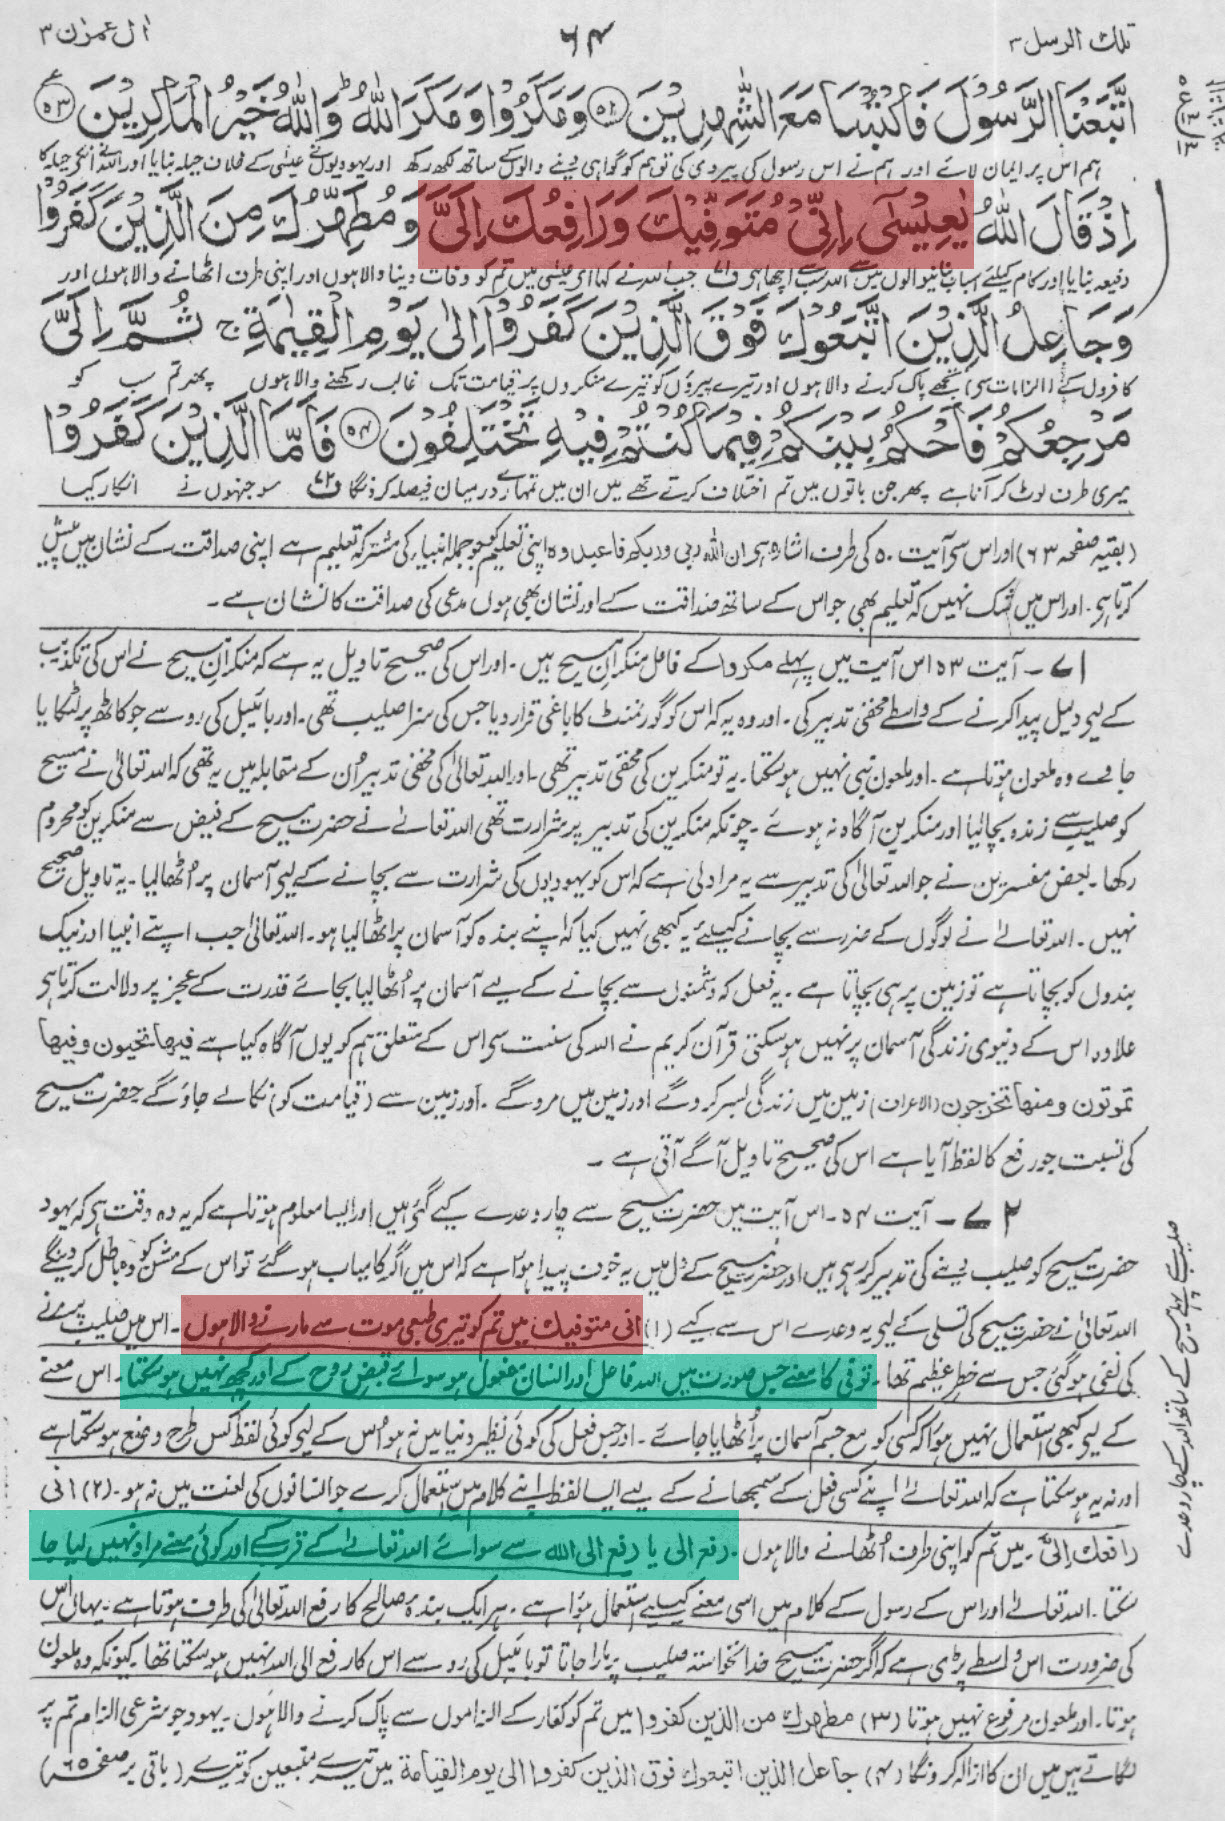 تلك الرسل ۳
۶۴
اٰل عمرٰن ۳
اتَّبَعْنَا الرَّسُوْلَ فَاكْتُبْنَا مَعَ الشّٰهِدِيْنَ ﴿۵۲﴾ وَمَكَرُوْا وَمَكَرَ اللّٰهُ ؕ وَاللّٰهُ خَيْرُ الْمٰكِرِيْنَ ﴿۵۳﴾
ہم اس پر ایمان لائے اور ہم نے اس رسول کی پیروی کی تو ہم کو گواہی دینے والوں کے ساتھ لکھ رکھ اور یہودیوں نے عیسٰی کے خلاف حیلہ بنایا اور اللہ نے انکے حیلہ کا
اِذْ قَالَ اللّٰهُ يٰعِيْسٰٓى اِنِّىْ مُتَوَفِّيْكَ وَرَافِعُكَ اِلَىَّ وَمُطَهِّرُكَ مِنَ الَّذِيْنَ كَفَرُوْا
دفعیہ بنایا اور کام کیلئے اسباب بنانیوالوں میں سے اللہ سب سے اچھا ہی ف۱ جب اللہ نے کہا ای عیسٰی میں تم کو وفات دینا والا ہوں اور اپنی طرف اٹھانے والا ہوں اور
وَجَاعِلُ الَّذِيْنَ اتَّبَعُوْكَ فَوْقَ الَّذِيْنَ كَفَرُوْٓا اِلٰى يَوْمِ الْقِيٰمَةِ ج ثُمَّ اِلَىَّ
کافروں کے (الزامات سی) تجھے پاک کرنے والا ہوں اور تیرے پیروؤں کو تیرے منکروں پر قیامت تک غالب رکھنے والا ہوں پھر تم سب کو
مَرْجِعُكُمْ فَاَحْكُمُ بَيْنَكُمْ فِيْمَا كُنْتُمْ فِيْهِ تَخْتَلِفُوْنَ ﴿۵۴﴾ فَاَمَّا الَّذِيْنَ كَفَرُوْا
میری طرف لوٹ کر آنا ہے پھر جن باتوں میں تم اختلاف کرتے تھے میں ان میں تمہارے درمیان فیصلہ کردونگا ف۲ سو جنہوں نے انکار کیا
(بقیہ صفحہ ۶۳) اور اس سی آیت ۵۰ کی طرف اشارہ ہی ان اللہ ربی و ربکم فاعبدوہ اپنی تعلیم کو جو جملہ انبیاء کی مشترکہ تعلیم ہے اپنی صداقت کے نشان میں پیش
کرتا ہی۔ اور اس میں شک نہیں کہ تعلیم بھی جو اس کے ساتھ صداقت کے اور نشان بھی ہوں مدعی کی صداقت کا نشان ہے۔
ف۱۔ آیت ۵۳ اس آیت میں پہلے مکروا کے فاعل منکرانِ مسیح ہیں۔ اور اس کی صحیح تاویل یہ ہے کہ منکرانِ مسیح نے اس کی تکذیب
کے لیی دلیل پیدا کرنے کے واسطے مخفی تدبیر کی۔ اور وہ یہ کہ اس کو گورنمنٹ کا باغی قرار دیا جس کی سزا صلیب تھی۔ اور بائیبل کی رو سے جو کاٹھ پر لٹکایا
جاوے وہ ملعون ہوتا ہے۔ اور ملعون نبی نہیں ہوسکتا۔ یہ تو منکرین کی مخفی تدبیر تھی۔ اور اللہ تعالیٰ کی مخفی تدبیر اُن کے مقابلہ میں یہ تھی کہ اللہ تعالیٰ نے مسیح
کو صلیب سے زندہ بچالیا اور منکرین آگاہ نہ ہوئے۔ چونکہ منکرین کی تدبیر پر شرارت تھی اللہ تعالےٰ نے حضرت مسیح کے فیض سے منکرین کو محروم
رکھا۔ بعض مفسرین نے جو اللہ تعالیٰ کی تدبیر سے یہ مراد لی ہے کہ اس کو یہودیوں کی شرارت سے بچانے کے لیی آسمان پر اُٹھالیا۔ یہ تاویل صحیح
نہیں۔ اللہ تعالےٰ نے لوگوں کے ضرر سے بچانے کیلئے یہ کبھی نہیں کیا کہ اپنے بندہ کو آسمان پر اٹھالیا ہو۔ اللہ تعالیٰ جب اپنے انبیا اور نیک
بندوں کو بچاتا ہے تو زمین پر ہی بچاتا ہے۔ یہ فعل کہ دشمنوں سے بچانے کے لیے آسمان پر اُٹھالیا بجائے قدرت کے عجز پر دلالت کرتا ہی
علاوہ اس کے دنیوی زندگی آسمان پر نہیں ہوسکتی قرآن کریم نے اللہ کی سنت سی اس کے متعلق ہم کو یوں آگاہ کیا ہے فیھا تحیون و فیھا
تموتون و منھا تخرجون (الاعراف) زمین میں زندگی بسر کروگے اور زمین میں مروگے۔ اور زمین سے (قیامت کو) نکالے جاؤگے حضرت مسیح
کی نسبت جو رفع کا لفظ آیا ہے اس کی صحیح تاویل آگے آتی ہے۔
ف۲۔ آیت ۵۴۔ اس آیت میں حضرت مسیح سے چار وعدے کیے گئی ہیں اور ایسا معلوم ہوتا ہے کہ یہ وہ وقت ہی کہ یہود
حضرت مسیح کو صلیب دینے کی تدبیر کر رہی ہیں اور حضرت مسیح کے دل میں یہ خوف پیدا ہوا ہے کہ اس میں اگر کامیاب ہوگئے تو اس کے مشن کو وہ باطل کردینگے
اللہ تعالیٰ نے حضرت مسیح کی تسلی کے لیی یہ وعدے اس سے کیے (۱) انی متوفیك میں تم کو تیری طبعی موت سے مارنے والا ہوں۔ اس میں صلیب پر مرنے
کی نفی ہوگئی جس سے خطر عظیم تھا۔ توفی کا معنے جس صورت میں اللہ فاعل اور انسان مفعول ہو سوائے قبضِ روح کے اور کچھ نہیں ہوسکتا۔ اس معنے
کے لیی کبھی استعمال نہیں ہوا کہ کسی کو مع جسم آسمان پر اُٹھایا جائے۔ اور جس فعل کی کوئی نظیر دنیا میں نہ ہو اُس کے لیی کوئی لفظ کس طرح وضع ہوسکتا ہے
اور نہ یہ ہوسکتا ہے کہ اللہ تعالےٰ اپنے کسی فعل کے سمجھانے کے لیے ایسا لفظ اپنے کلام میں استعمال کرے جو انسانوں کی لغت میں نہ ہو۔ (۲) انی
رافعك اِلیَّ۔ میں تم کو اپنی طرف اُٹھانے والا ہوں۔ رفع الی یا رفع الی اللہ سے سوائے اللہ تعالےٰ کے قرب کے اور کوئی معنے مراد نہیں لیا جا
سکتا۔ اللہ تعالےٰ اور اس کے رسول کے کلام میں اسی معنے کیلیے استعمال ہوا ہے۔ ہر ایک بندہ صالح کا رفع اللہ تعالیٰ کی طرف ہوتا ہے۔ یہاں اس
کی ضرورت اس واسطے پڑی ہے کہ اگر حضرت مسیح خدانخواستہ صلیب پر مارا جاتا تو بائیبل کی رو سے اس کا رفع الی اللہ نہیں ہوسکتا تھا۔ کیونکہ وہ ملعون
ہوتا۔ اور ملعون مرفوع نہیں ہوتا (۳) مطھرك من الذین کفروا میں تم کو کفار کے الزاموں سے پاک کرنے والا ہوں۔ یہود جو شرعی الزام تم پر
لگاتے ہیں میں ان کا ازالہ کرونگا (۴) جاعل الذین اتبعوك فوق الذین کفروا الی یوم القیامة میں تیرے متبعین کو تیرے (باقی بر صفحہ ۶۵)